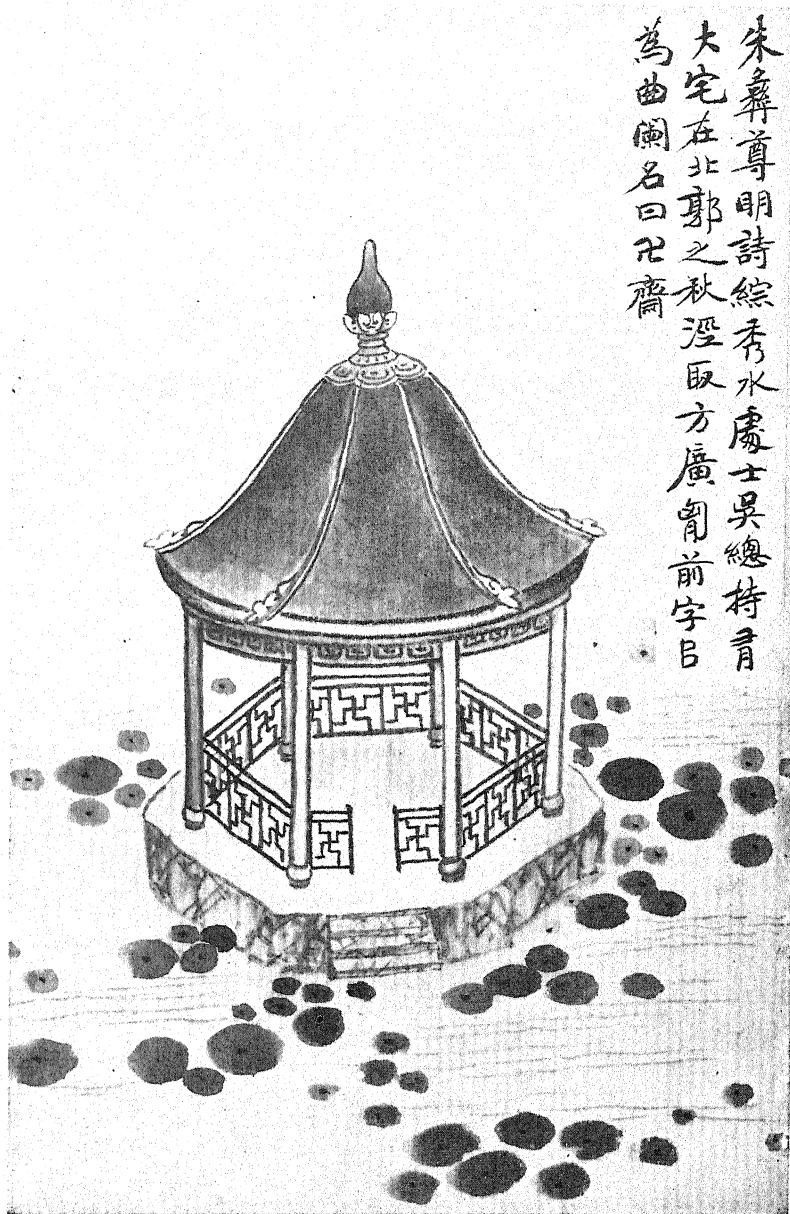 朱彝尊明詩綜秀水處士吳總持有
大宅在北郭之秋涇取方廣胷前字㠯
為曲闌名曰卍齋